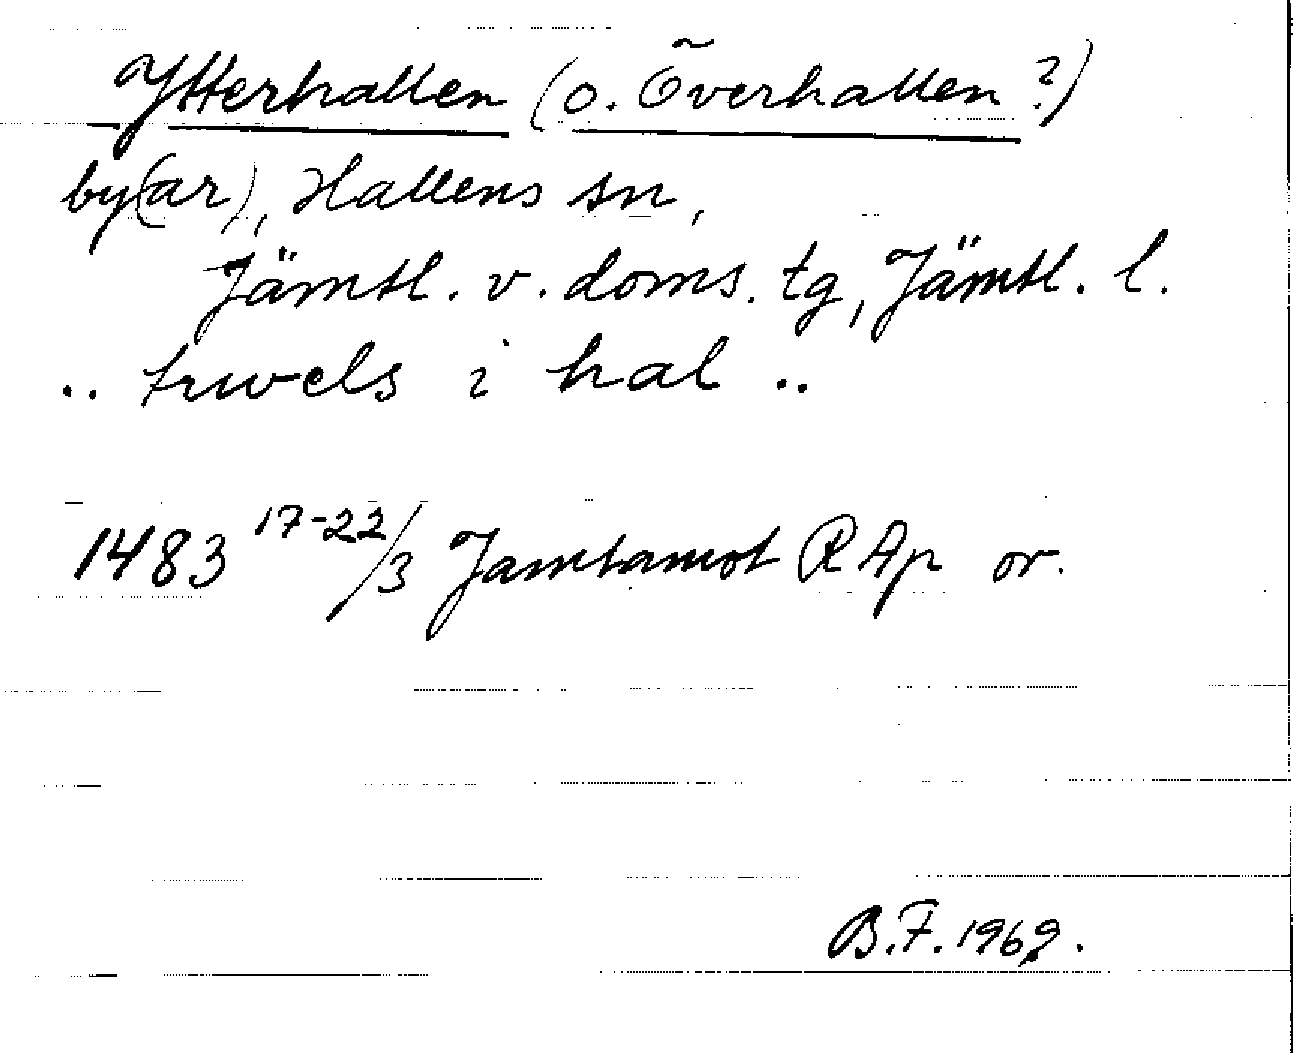 Ytterhallen (o. Överhallen?)
by(ar), Hallens sn,
Jämtl. v. doms. tg, Jämtl. l.
.. truvels i hal ..
1483 17-22/3 Jamtamot RAp or.
B.F. 1969.